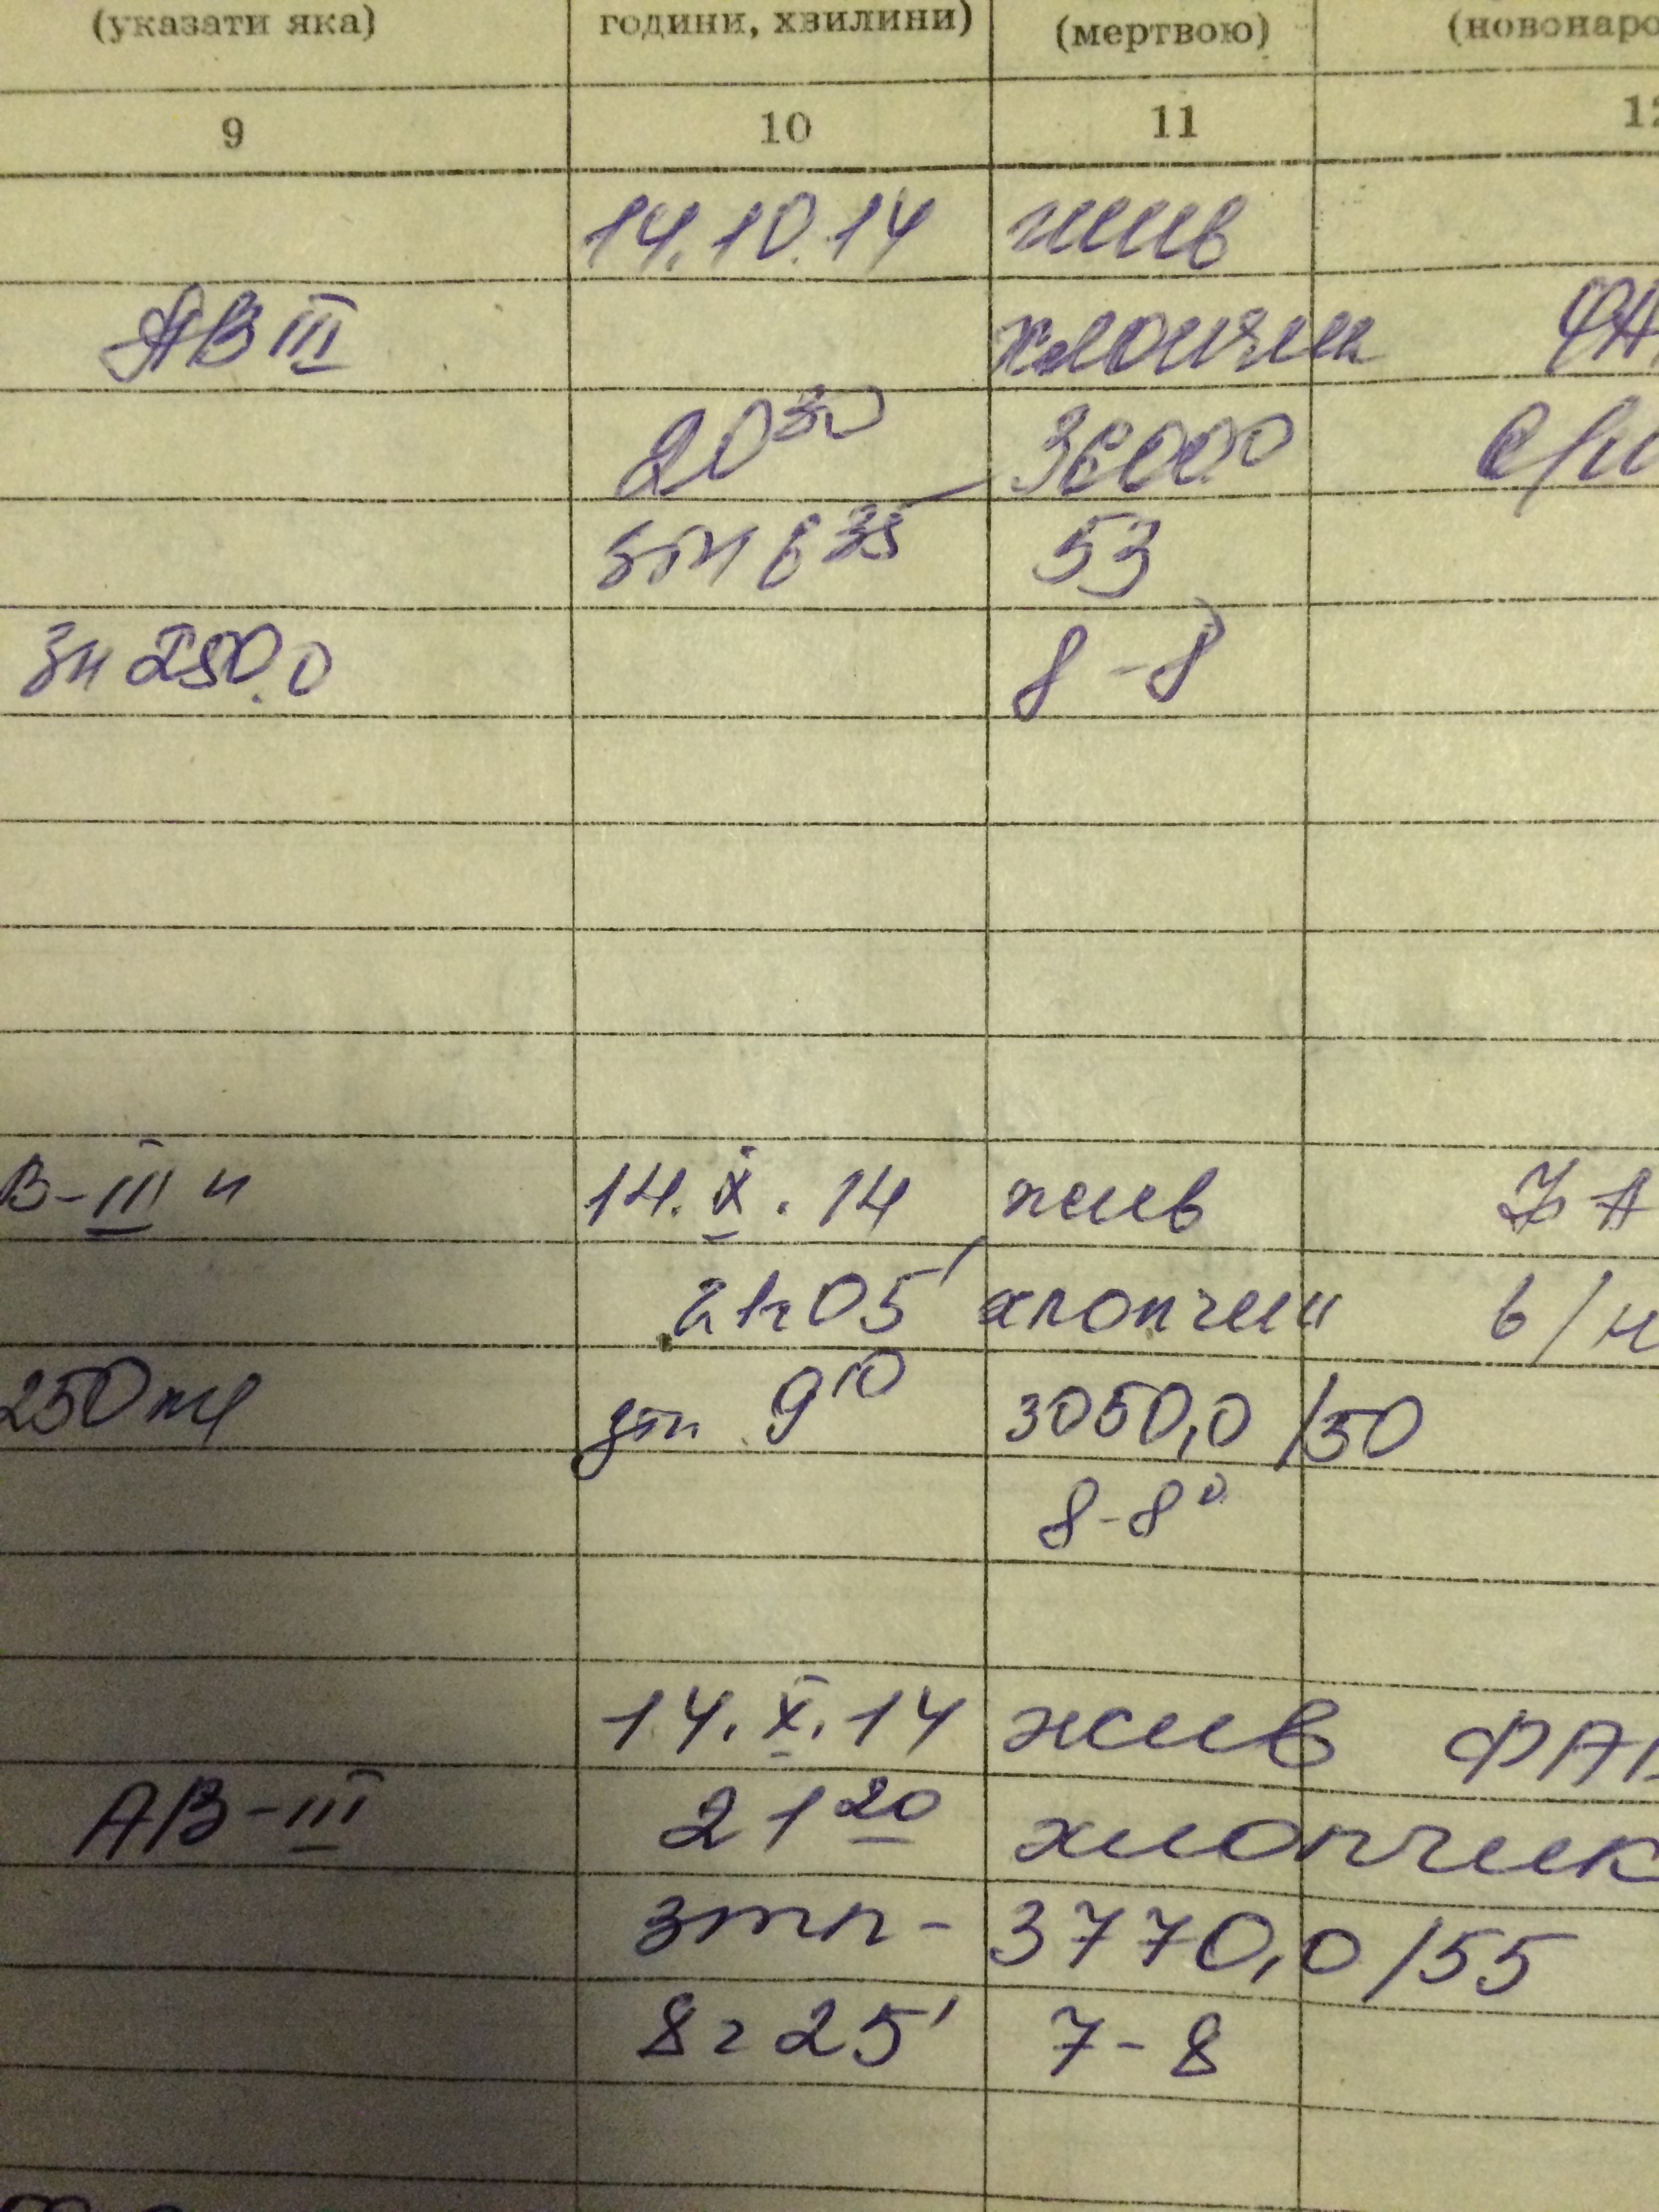 (указати яка) години, хвилини) (мертвою) (новонаро
9 10 11 12
14.10.14 жив
АВ III хлопчик
20³⁰ 3600.0
зтп 6³⁵ 53
зп 250.0 8-8
В-III 14.X.14 жив
21г05' хлопчик в/н
250 мл зтп 9¹⁰ 3050,0/50
8-8
14.X.14 жив ФАВ
АВ-III 21²⁰ хлопчик
зтп - 3770,0/55
8г25' 7-8